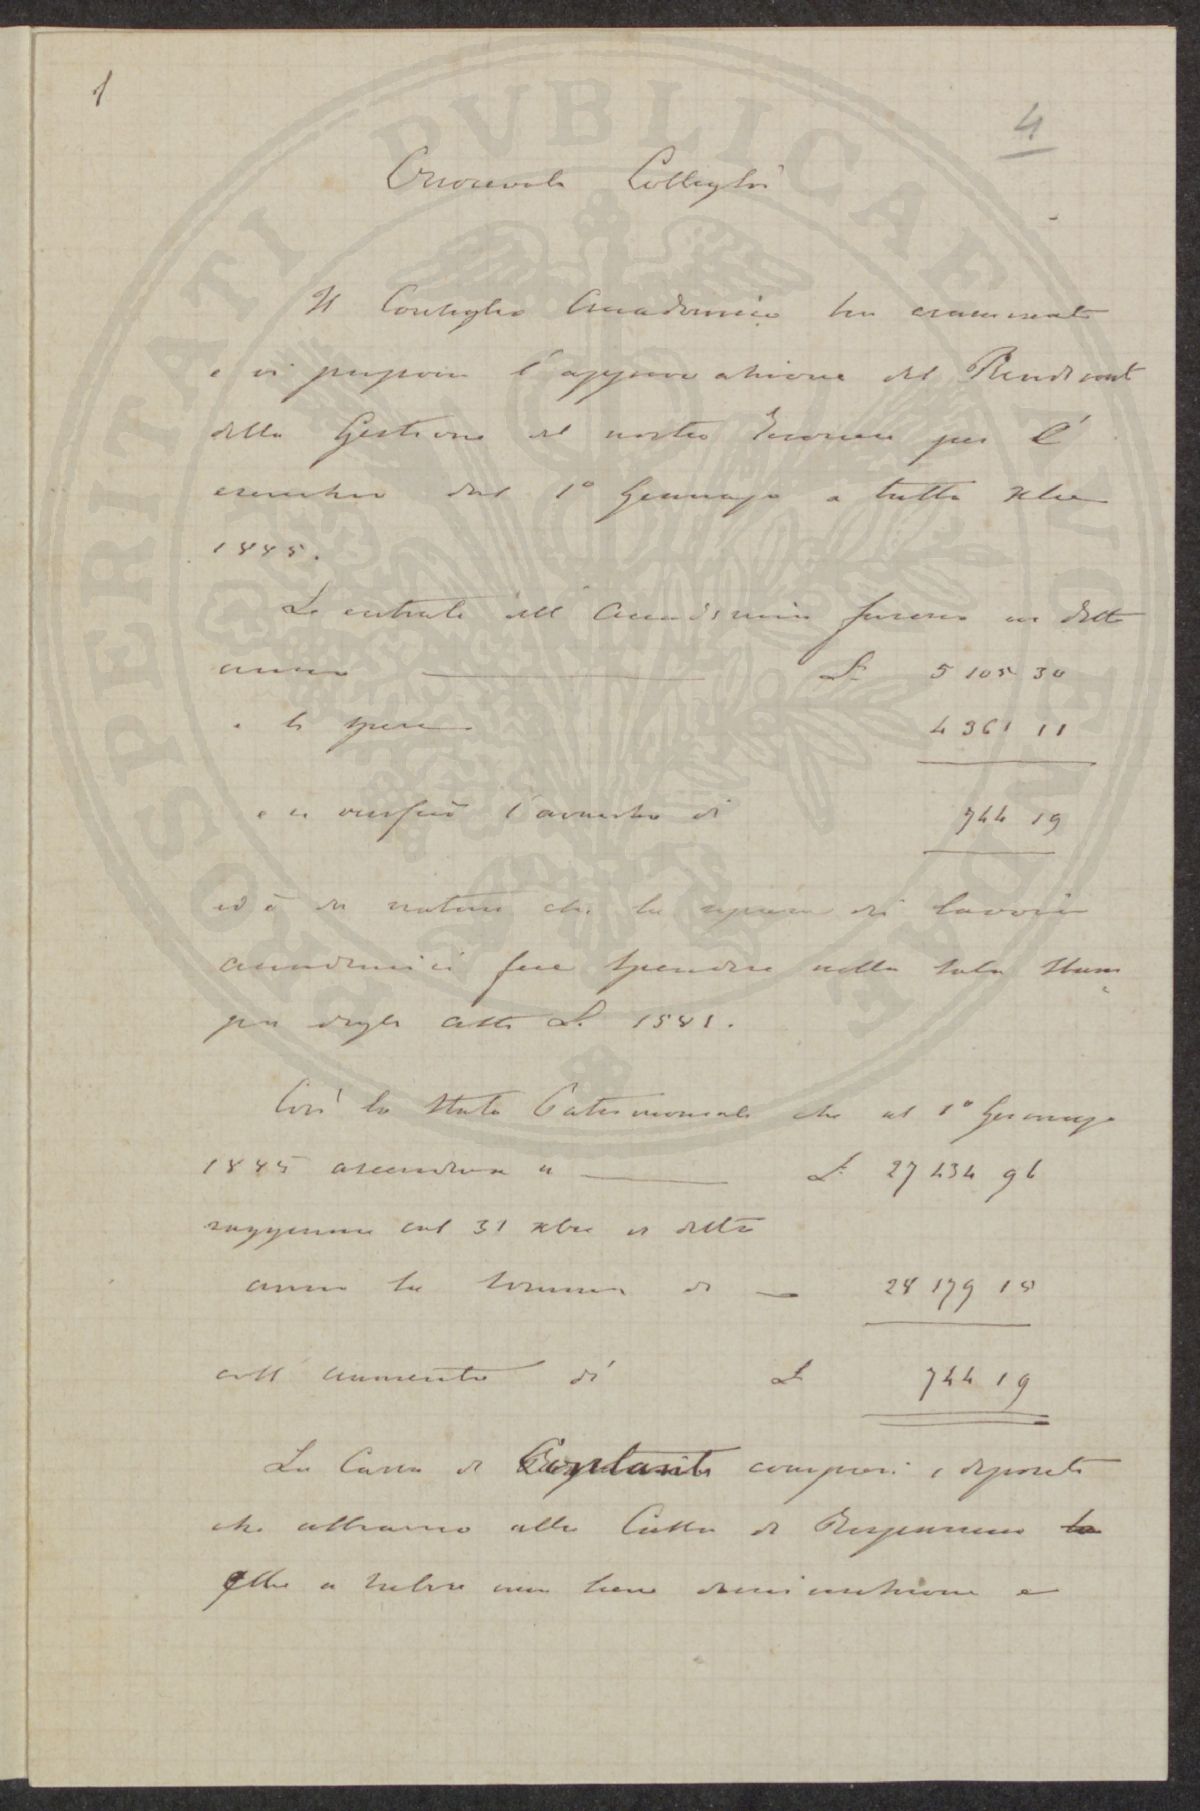 1
4
Onorevoli Colleghi
Il Consiglio Accademico ha esaminato
e vi propone l'approvazione del Rendiconto
della Gestione del nostro Economo per l'
esercizio dal 1° Gennajo a tutto Xbre
1885.
Le entrate dell'Accademia furono in detto
anno L. 5105 30
e le spese 4361 11
e si verificò l'avanzo di 744 19
ed è da notare che la ripresa dei lavori
accademici fece spendere nella sola Stam
pa degli Atti L. 1581.
Così lo Stato Patrimoniale che al 1° Gennajo
1885 ascendeva a L. 27434 96
raggiunse col 31 Xbre di detto
anno la somma di 28179 15
coll'aumento di L. 744 19
La Cassa di Contanti compresi i depositi
che abbiamo alla Cassa di Risparmio
ebbe a subire una lieve diminuzione e
PROSPERITATI PVBLICAE AVGENDAE